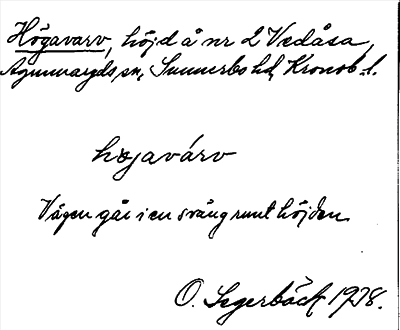 Högavarv, höjd å nr 2 Vedåsa,
Agunnaryds sn, Sunnerbo hd, Kronob. l.
högavárv
Vägen går i en sväng runt höjden.
O. Segerbäck 1928.